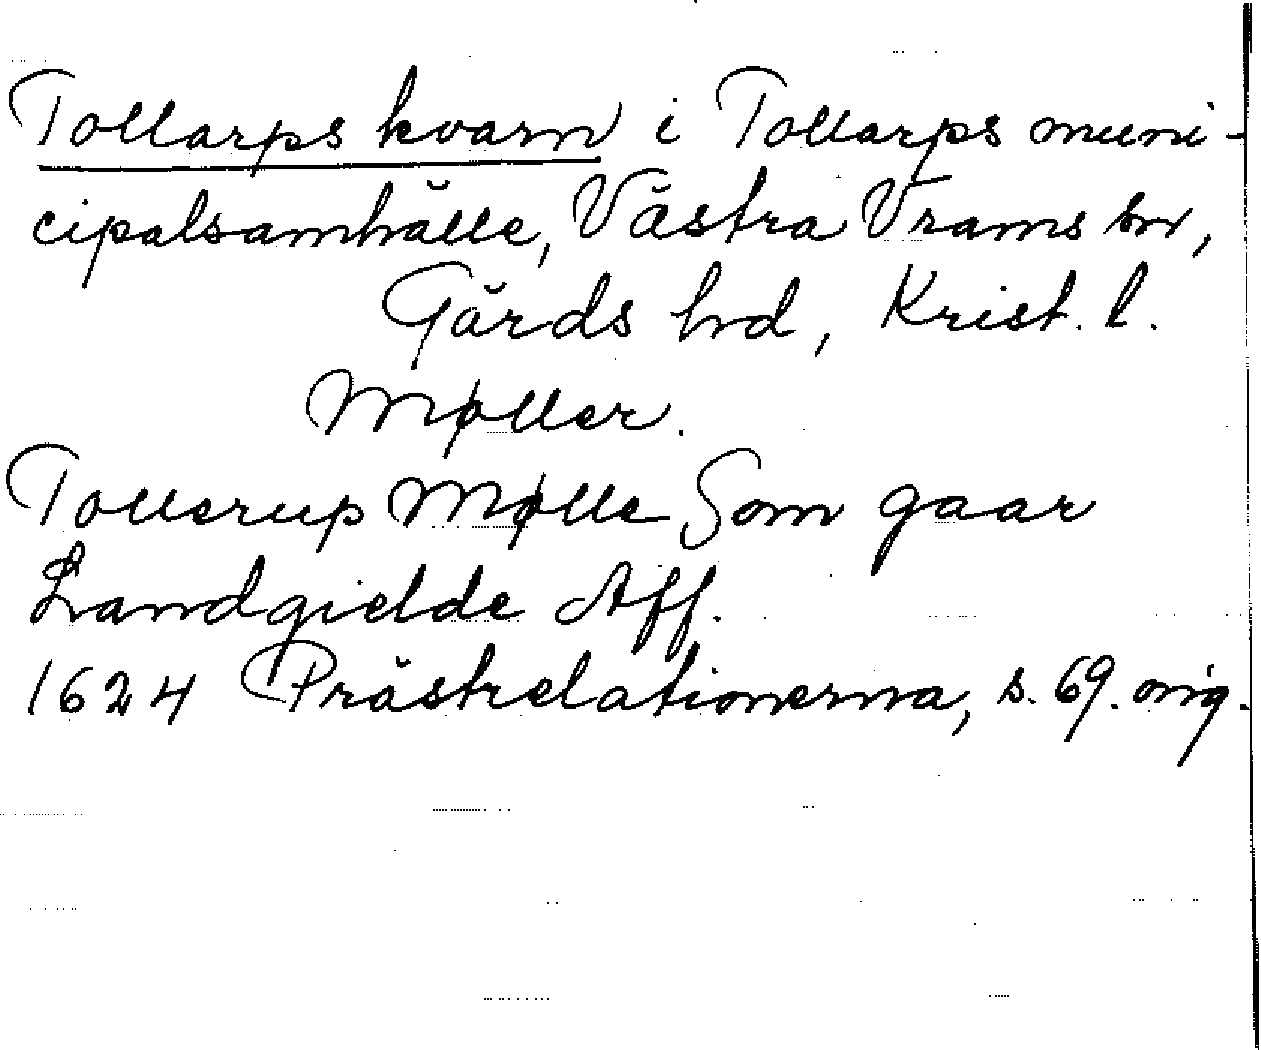 Tollarps kvarn i Tollarps muni-
cipalsamhälle, Västra Vrams sn,
Gärds hd, Krist. l.
Møller.
Tollerup Mølle Som gaar
Landgielde Aff.
1624 Prästrelationerna, s. 69. orig.